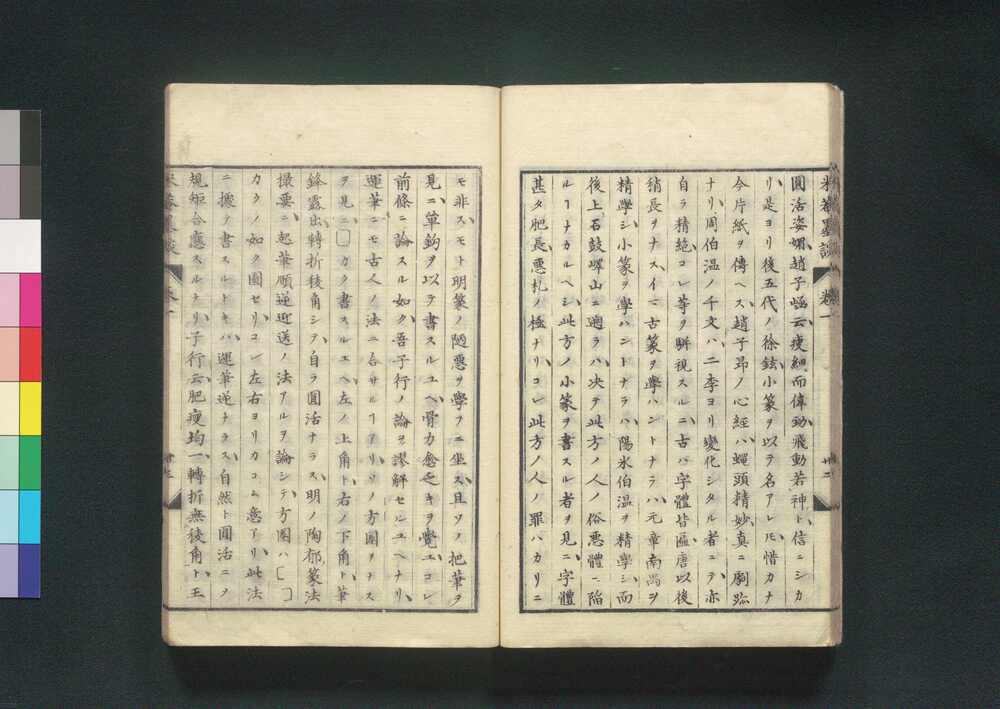 米菴墨談 巻一
圓活姿媚趙子𡷫云瘦細而偉勁飛動若神ト信ニシカ
リ是ヨリ後五代ノ徐鉉小篆ヲ以テ名アレ𪜈惜カナ
今片紙ヲ傳ヘス趙子昂ノ心經ハ蠅頭精妙真ニ劇跡
ナリ周伯温ノ千文ハ二李ヨリ變化シタル者ニテ亦
自ラ精絶コレ等ヲ骿視スルニ古ハ字體皆匾唐以後
稍長ヲナスイ二古篆ヲ學ハントナラハ元章南嵩ヲ
精學シ小篆ヲ學ハントナラハ陽氷伯温ヲ精學シ而
後上石鼓嶧山ニ遡ラハ决テ此方ノ人ノ俗悪體ニ陥
ルヿナカルヘシ此方ノ小篆ヲ書スル者ヲ見ニ字體
甚タ肥長悪札ノ極ナリコレ此方ノ人ノ罪ハカリニ
モ非スモト明篆ノ陋悪ヲ學フニ坐ス且ツノ把筆ヲ
見ニ单鈎ヲ以テ書スルユヘ骨力愈乏キヲ覺エコレ
前條ニ論スル如ク吾子行ノ論ヲ謬解セルユヘナリ
運筆ニモ古人ノ法ニ合サルヿアリソノ方圓ヲナス
ヲ見ニ カク書スルユヘ左ノ上角ト右ノ下角ト筆
鋒露出轉折稜角シテ自ラ圓活ナラス明ノ陶郁篆法
撮要ニ起筆順逆迎送ノ法アルヲ論シテ方圍ハ
カクノ如ク圍セリコレ左右ヨリカコム意アリ此法
ニ據テ書スルトキハ運筆逆ナラス自然ト圓活ニノ
規矩合應スルナリ子行云肥瘦均一轉折無稜角ト王